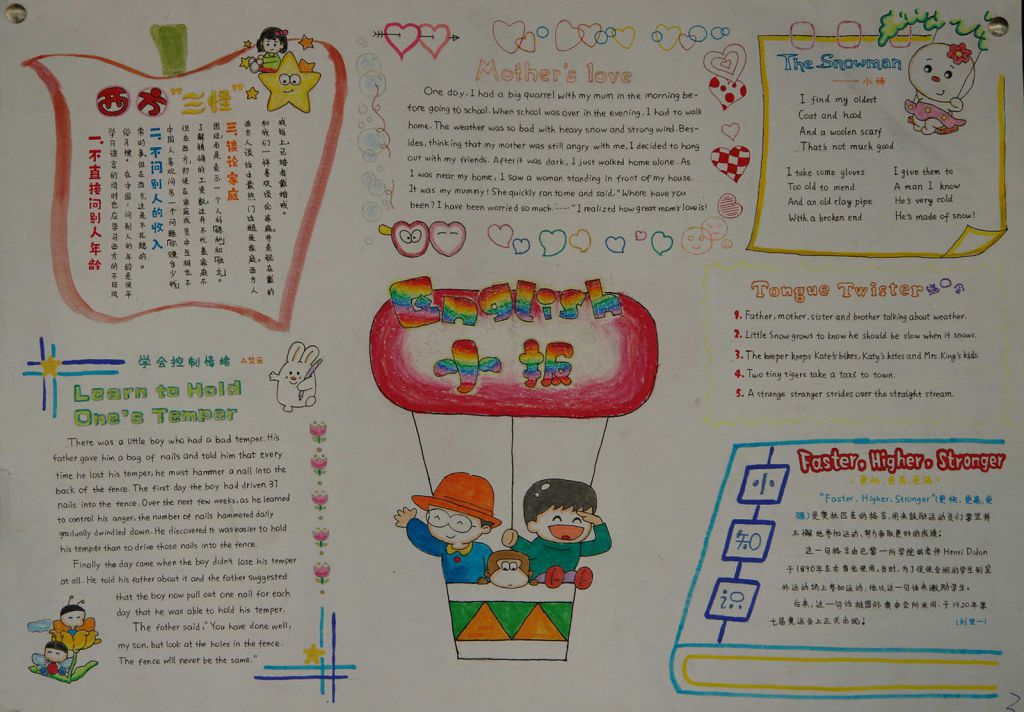 西方"三怪"
一、不直接问别人年龄
学习语言的同时也应学习西方的不同风
俗习惯。在中国,问别人的年龄是很平
常的事,但在西方,这是不礼貌的。
二、不问别人的收入
中国人喜欢问另一个问题"你赚多少钱"
但在西方,即使在家庭成员中互相也不
了解精确的工资数,这并不代表家庭不
团结,而是表示一个人的"隐私"和"独立"。
三、谈论家庭
西方人谈话中最热门话题是家庭。西方人
和我们一样喜欢谈论家庭,并表现在戴的
戒指上,已婚者戴婚戒。
Mother's love
One day, I had a big quarrel with my mum in the morning be-
fore going to school. When school was over in the evening, I had to walk
home. The weather was so bad with heavy snow and strong wind. Bes-
ides, thinking that my mother was still angry with me, I decided to hang
out with my friends. After it was dark, I just walked home alone. As
I was near my home, I saw a woman standing in front of my house.
It was my mummy! She quickly ran to me and said, "Where have you
been? I have been worried so much……"I realized how great mom's love is!
The Snowman
——小诗
I find my oldest
Coat and hood
And a woolen scarf
That's not much good
I take some gloves
Too old to mend
And an old clay pipe
With a broken end
I give them to
A man I know
He's very cold
He's made of snow!
English
小报
Tongue Twister
1. Father, mother, sister and brother talking about weather.
2. Little Snow grows to know he should be slow when it snows.
3. The keeper keeps Kate's bikes, Katy's kites and Mrs. King's kids.
4. Two tiny tigers take a taxi to town.
5. A strange stranger strides over the straight stream.
学会控制情绪 △艾云
Learn to Hold
One's Temper
There was a little boy who had a bad temper. His
father gave him a bag of nails and told him that every
time he lost his temper, he must hammer a nail into the
back of the fence. The first day the boy had driven 37
nails into the fence. Over the next few weeks, as he learned
to control his anger, the number of nails hammered daily
gradually dwindled down. He discovered it was easier to hold
his temper than to drive those nails into the fence.
Finally the day came when the boy didn't lose his temper
at all. He told his father about it and the father suggested
that the boy now pull out one nail for each
day that he was able to hold his temper.
The father said, "You have done well,
my son, but look at the holes in the fence.
The fence will never be the same."
小知识
Faster, Higher, Stronger
(更快、更高、更强)
"Faster、Higher、Stronger"(更快、更高、更
强)是奥林匹克的格言,用来鼓励运动员们要坚持
不懈地参加运动、努力争取更好的成绩!
这一句格言由巴黎一所学院的老师Henri Didon
于1890年左右首先使用。当时,为了促使全班的学生到室
外运动场上参加运动,他以这一句话来激励学生。
后来,这一句话被国际奥委会所采用,于1920年第
七届奥运会上正式出现! (刘世一)